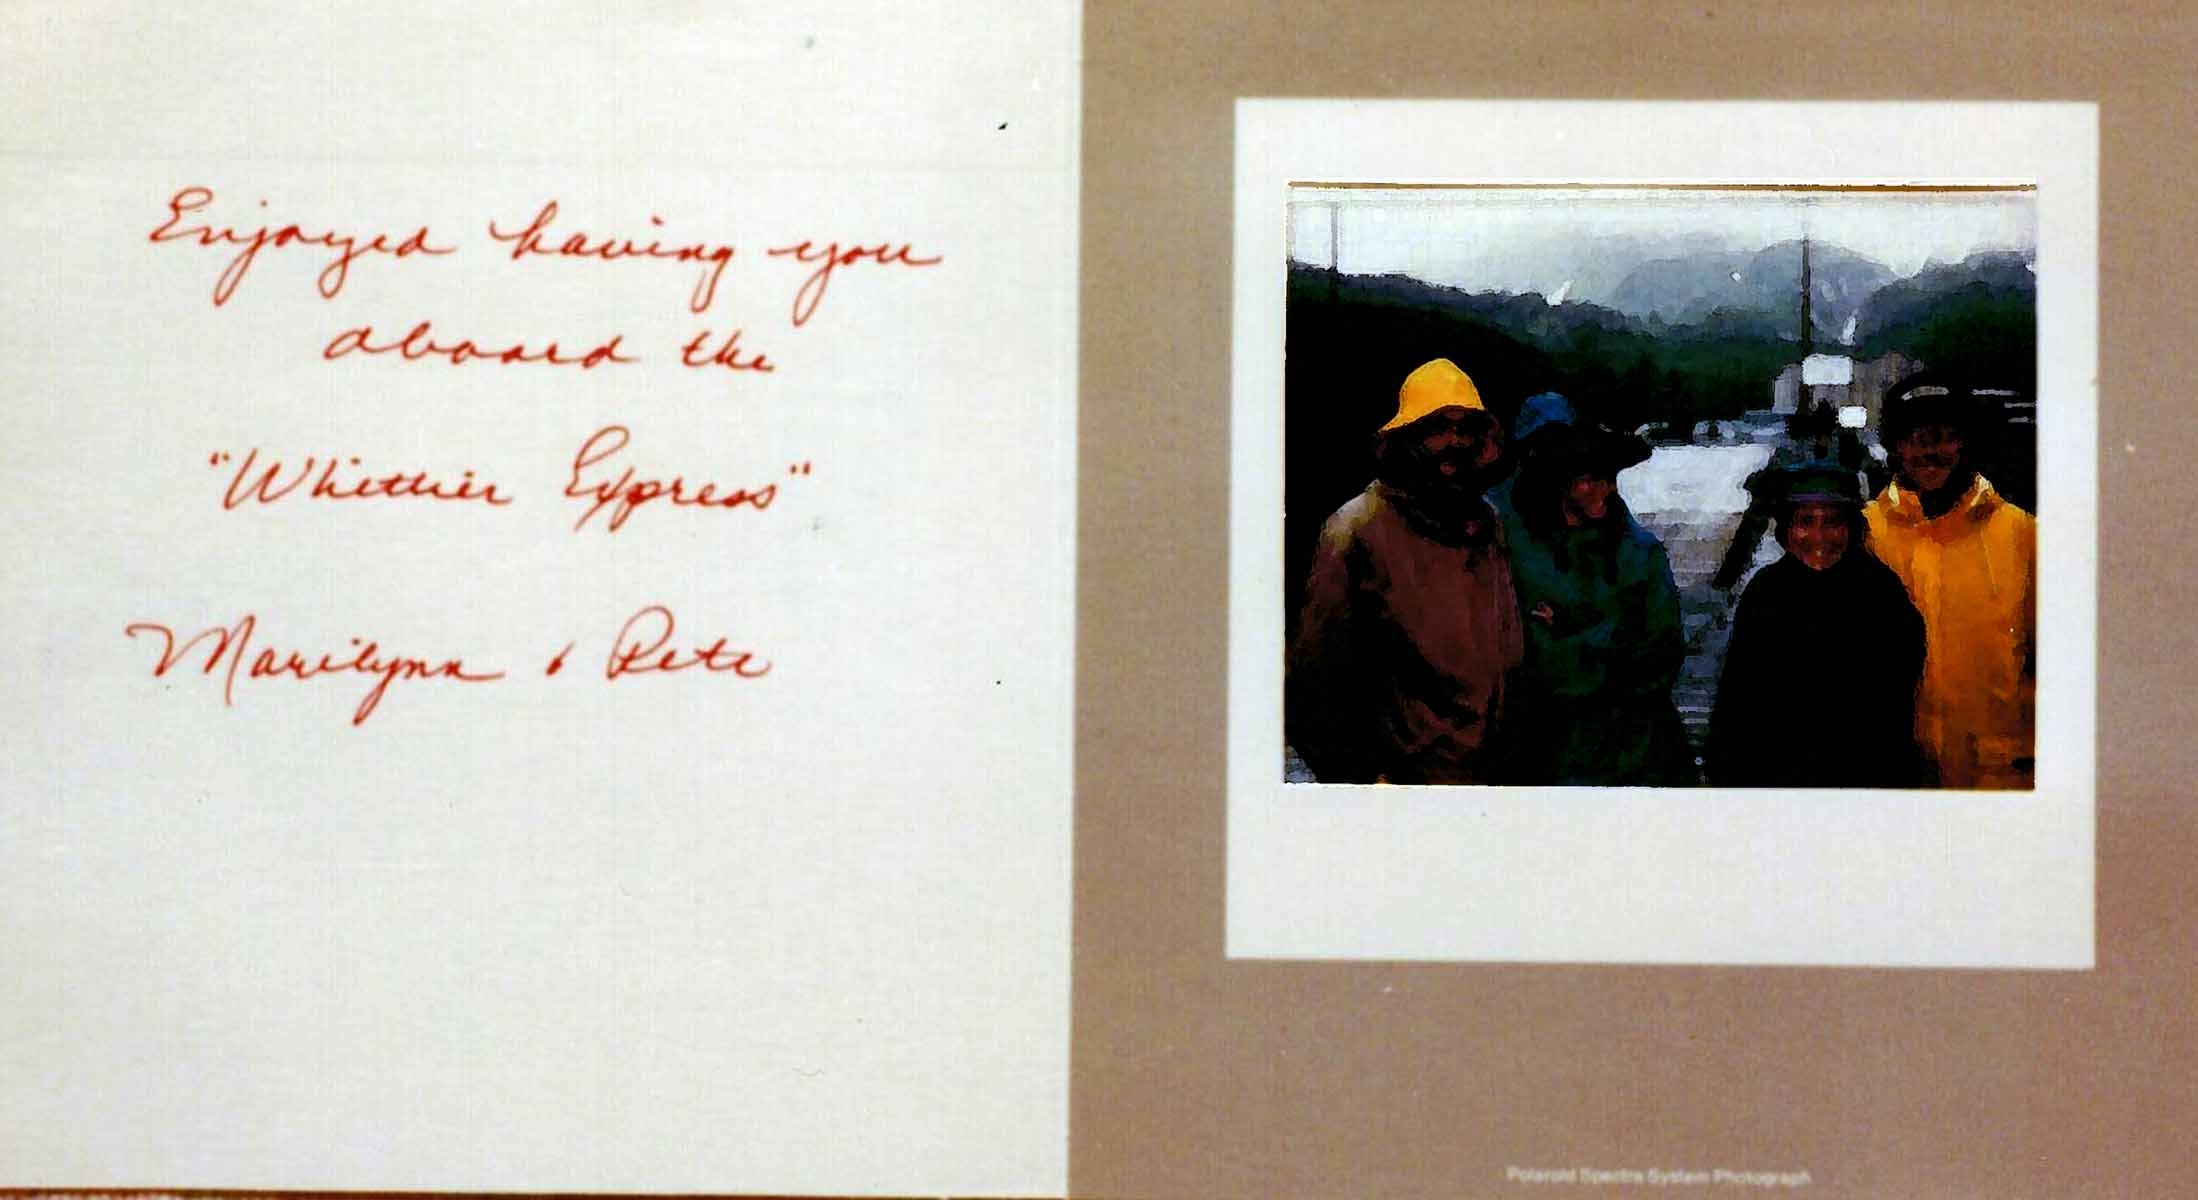 Enjoyed having you
aboard the
"Whittier Express"
Marilynn & Pete
Polaroid Spectra System Photograph